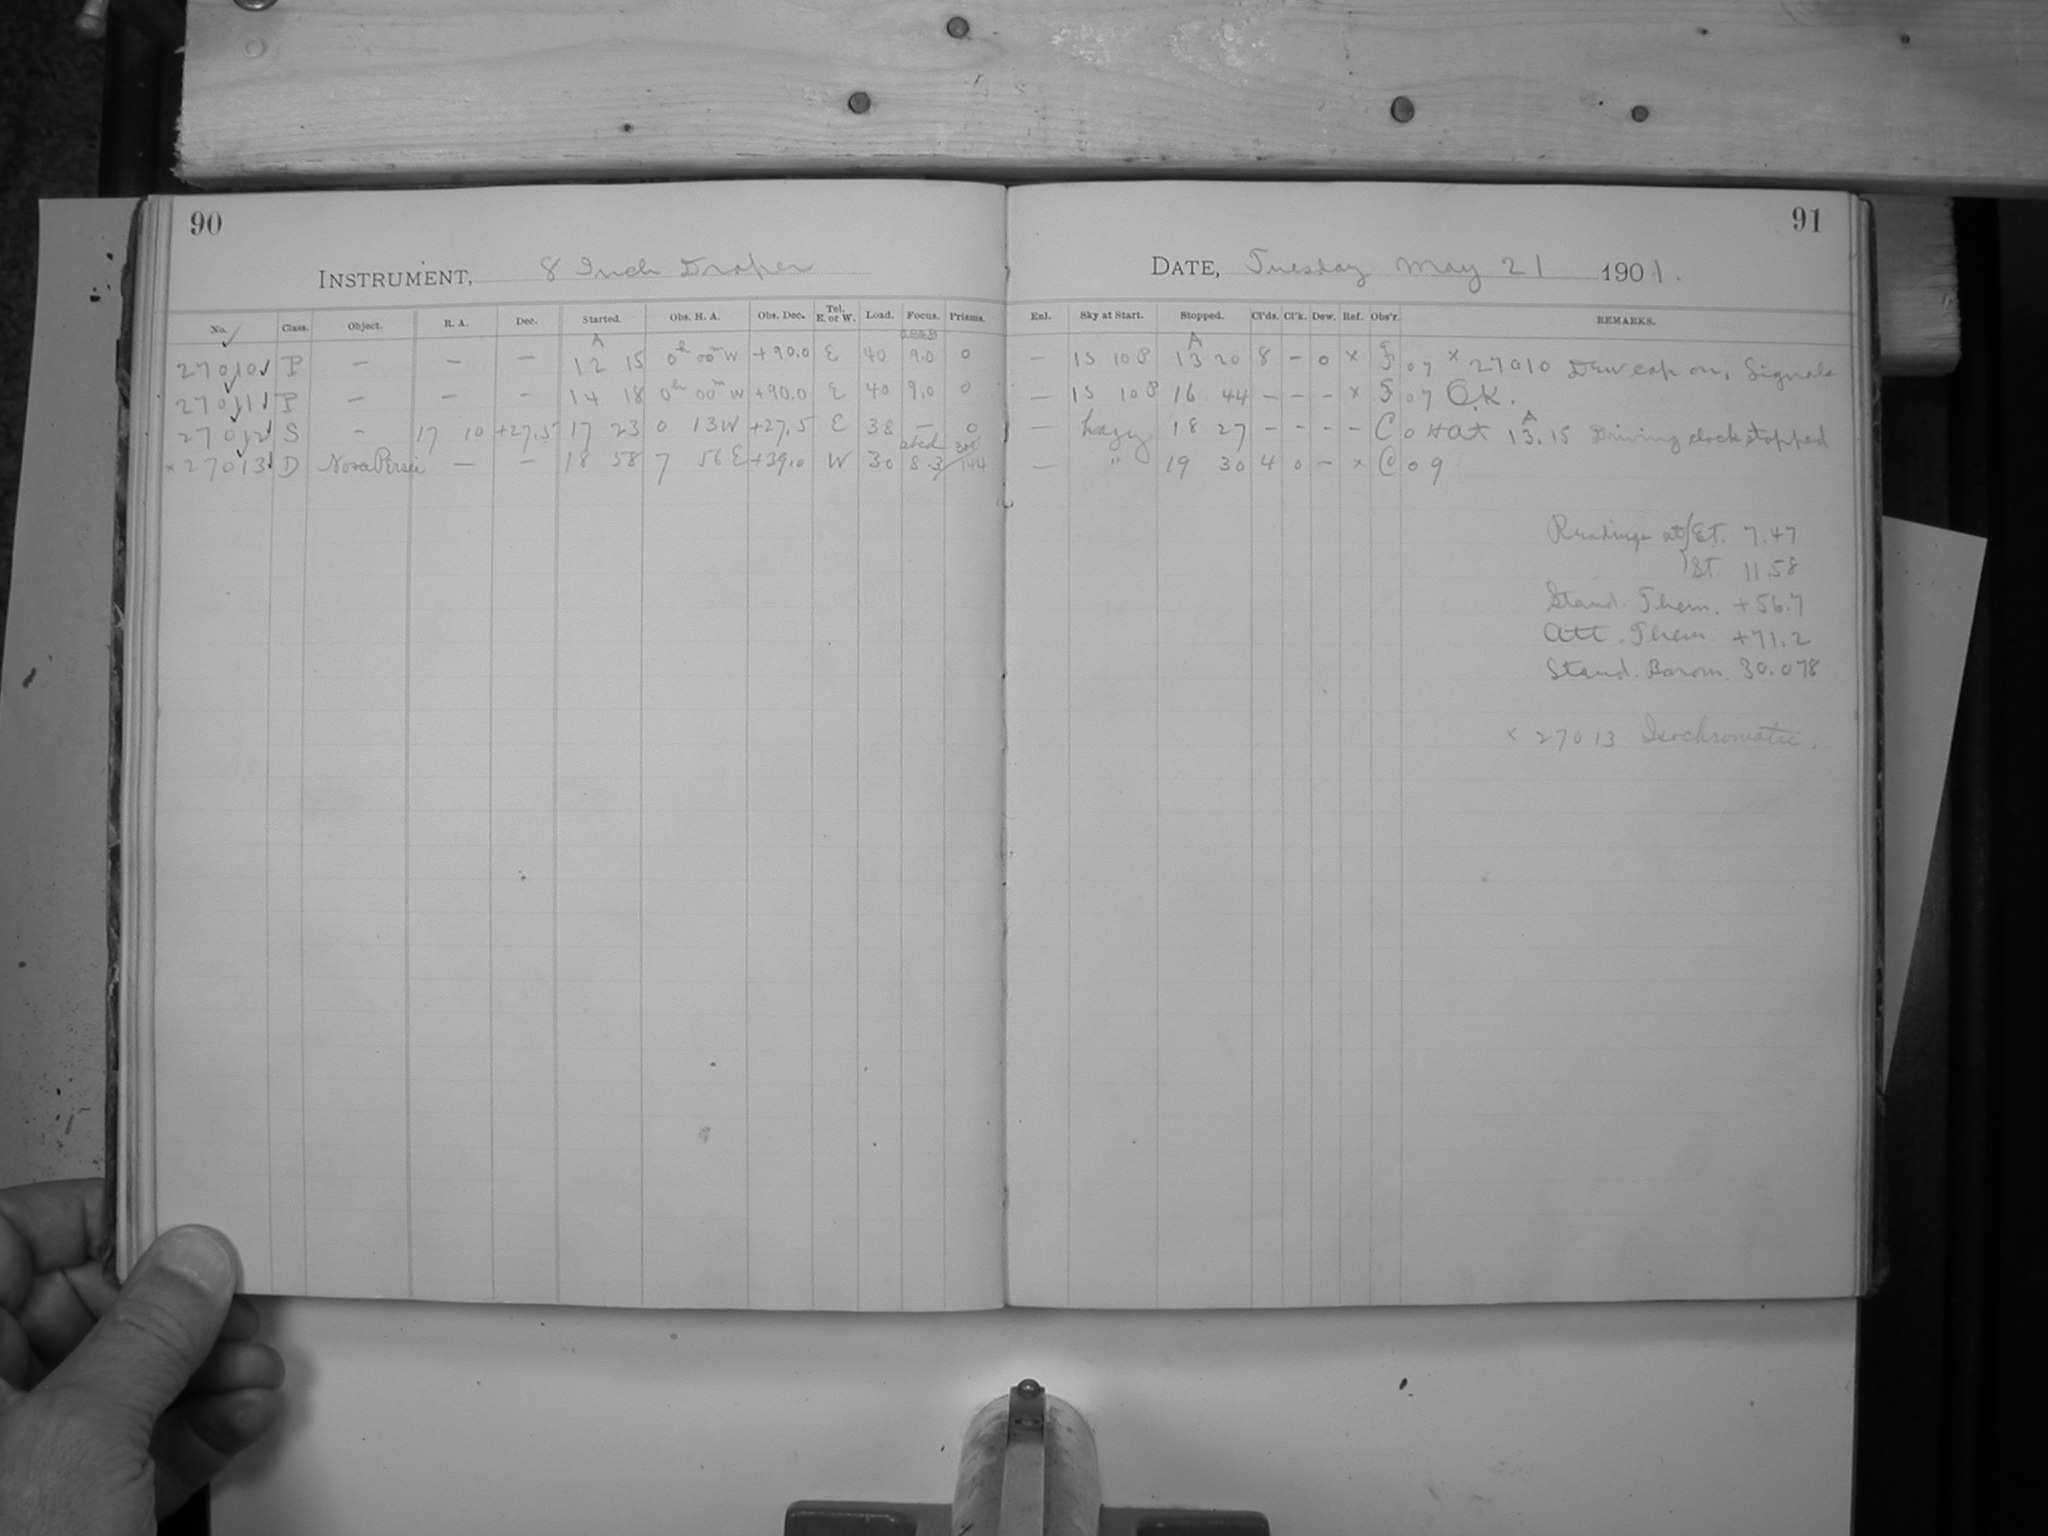 90
INSTRUMENT, 8 Inch Draper
No. Class. Object. R. A. Dec. Started. Obs. H. A. Obs. Dec. Tel. E. or W. Load. Focus. Prisms.
27010 P — — — A 12 15 0h 00m W +90.0 E 40 9.0 0
27011 P — — — 14 18 0h 00m W +90.0 E 40 9.0 0
27012 S — 17 10 +27.5 17 23 0 13W +27.5 E 38 — 0
x 27013 D Nova Persei — — 18 58 7 56 E +39.0 W 30 8.3 144
91
DATE, Tuesday May 21 1901.
Enl. Sky at Start. Stopped. Cl'ds. Cl'k. Dew. Ref. Obs'r. REMARKS.
— 15 108 A 13 20 8 — 0 x 07 x 27010 Dew cap on. Signals
— 15 108 16 44 — — — x 07 O.K.
— hazy 18 27 — — — — C 0 at A 13.15 Driving clock stopped
— " 19 30 4 0 — x C 09
Readings at ET. 7.47
ST. 11.58
Stand. Therm. +56.7
Att. Therm. +71.2
Stand. Barom. 30.078
x 27013 Isochromatic.